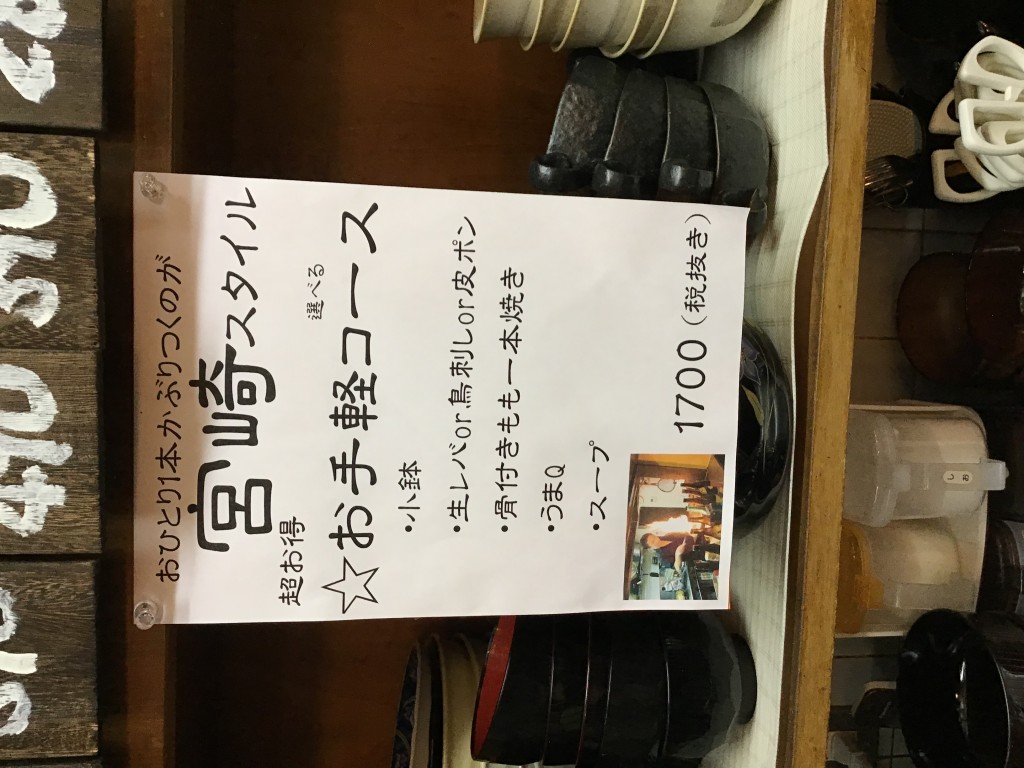 おひとり1本かぶりつくのが
宮崎スタイル
超お得
選べる
☆お手軽コース
・小鉢
・生レバor鳥刺しor皮ポン
・骨付きもも一本焼き
・うまQ
・スープ
1700(税抜き)
しお